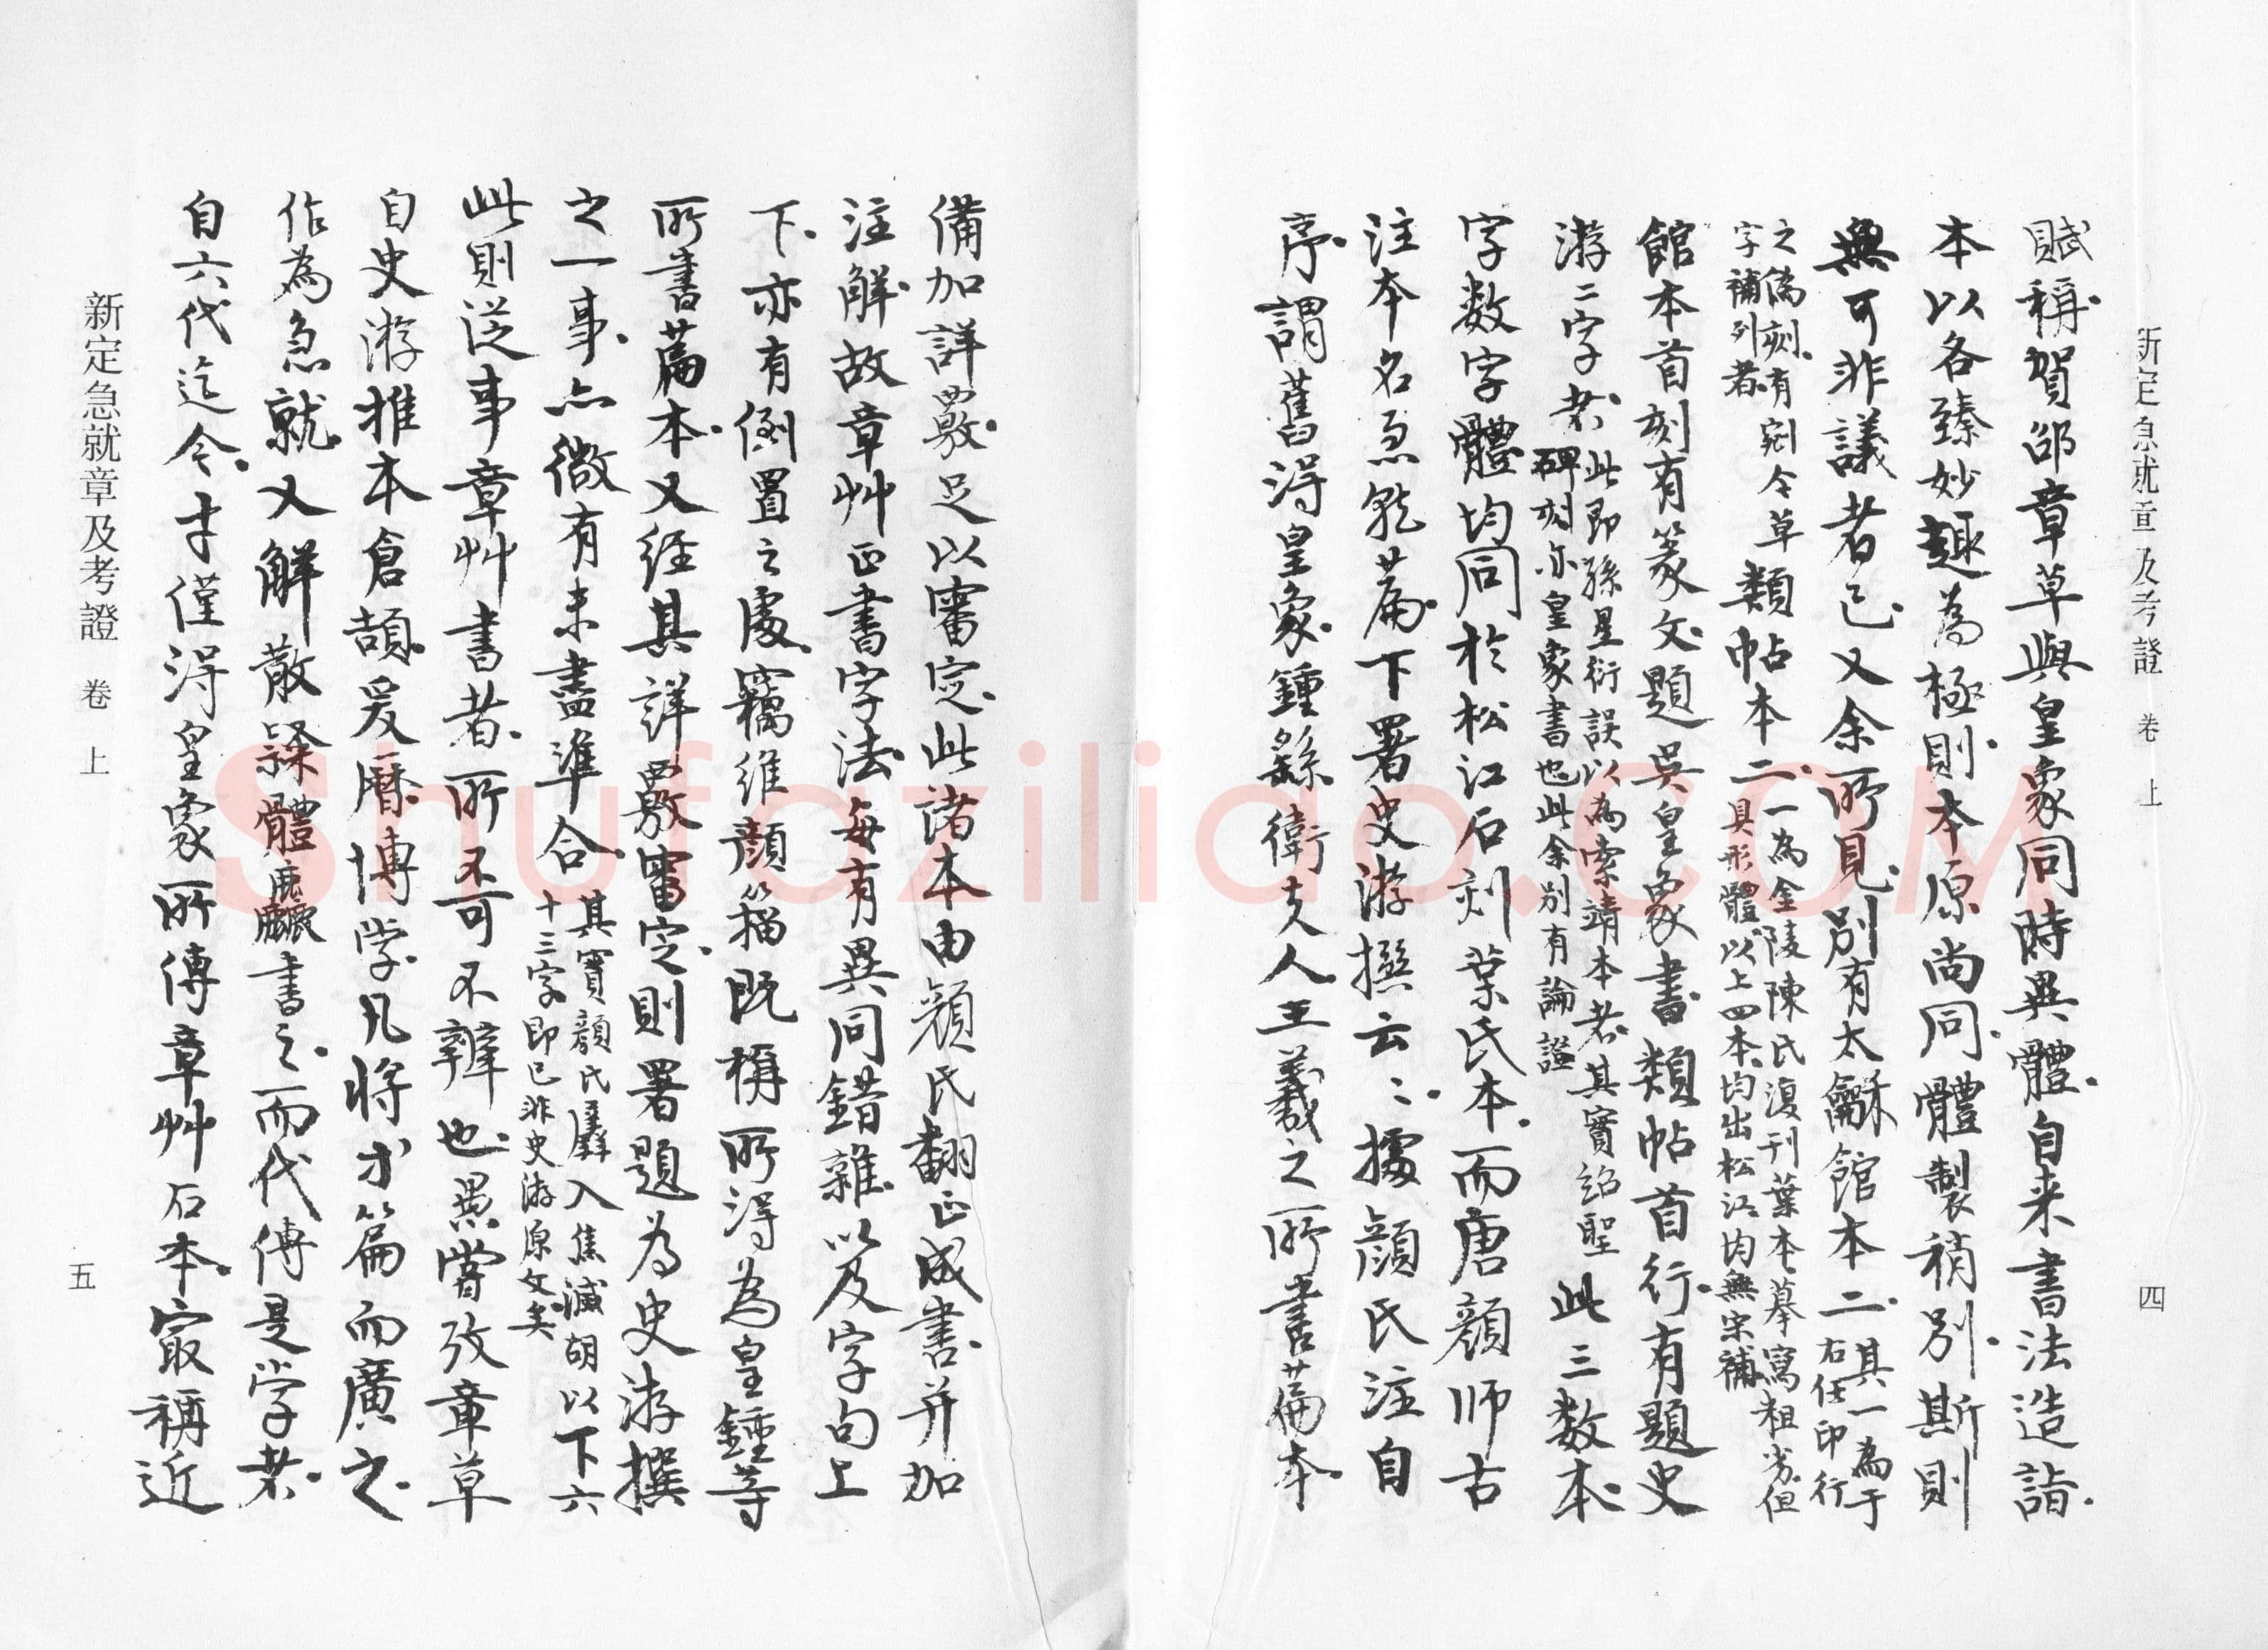 新定急就章及考證 卷上
四
賦稱.賀邵章草與皇象同時異體.自来書法造詣.
本以各臻妙趣為極則.本原尚同.體製稍別.斯則
無可非議者已.又余所見.別有太龢館本二.
其一為于
右任印行
之偽刻.有剜令草
字補列者.
類帖本二.
一為金陵陳氏復刊葉本.摹寫粗劣.但
具形體.以上四本.均出松江.均無宋補.
館本首刻有篆文.題吳皇象書.類帖首行.有題史
游二字者.
此即孫星衍誤以為索靖本者.其實紹聖
碑刻亦皇象書也.此余別有論證
此三数本.
字数字體均同於松江石刻葉氏本.而唐顏师古
注本名急就篇.下署史游撰云〻.據顏氏注自
序.謂舊得皇象.鍾繇.衛夫人.王羲之所書篇本.
備加詳覈.足以審定.此諸本由顏氏翻正成書.并加
注解.故章艸正書字法.每有異同錯雜.以及字句上
下.亦有倒置之處.竊維顏籀既稱所得為皇鍾等
所書篇本.又經其詳覈審定.則署題為史游撰
之一事.亦微有未盡準合.
其實顏氏羼入焦滅胡以下六
十三字.即已非史游原文矣.
此則泛事章艸書者.所不可不辨也.愚嘗攷章草
自史游推本倉頡.爰曆.博学.凡将方篇而廣之.
作為急就.又解散隸體麤書之.而代傳是学者.
自六代迄今.才僅得皇象所傳章艸石本.最稱近
新定急就章及考證 卷上
五